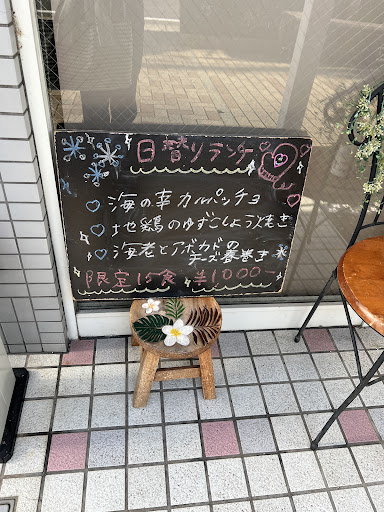 日替りランチ
海の幸カルパッチョ
地鶏のゆずこしょう焼き
海老とアボカドの
チーズ春巻き
限定15食 ¥1000-